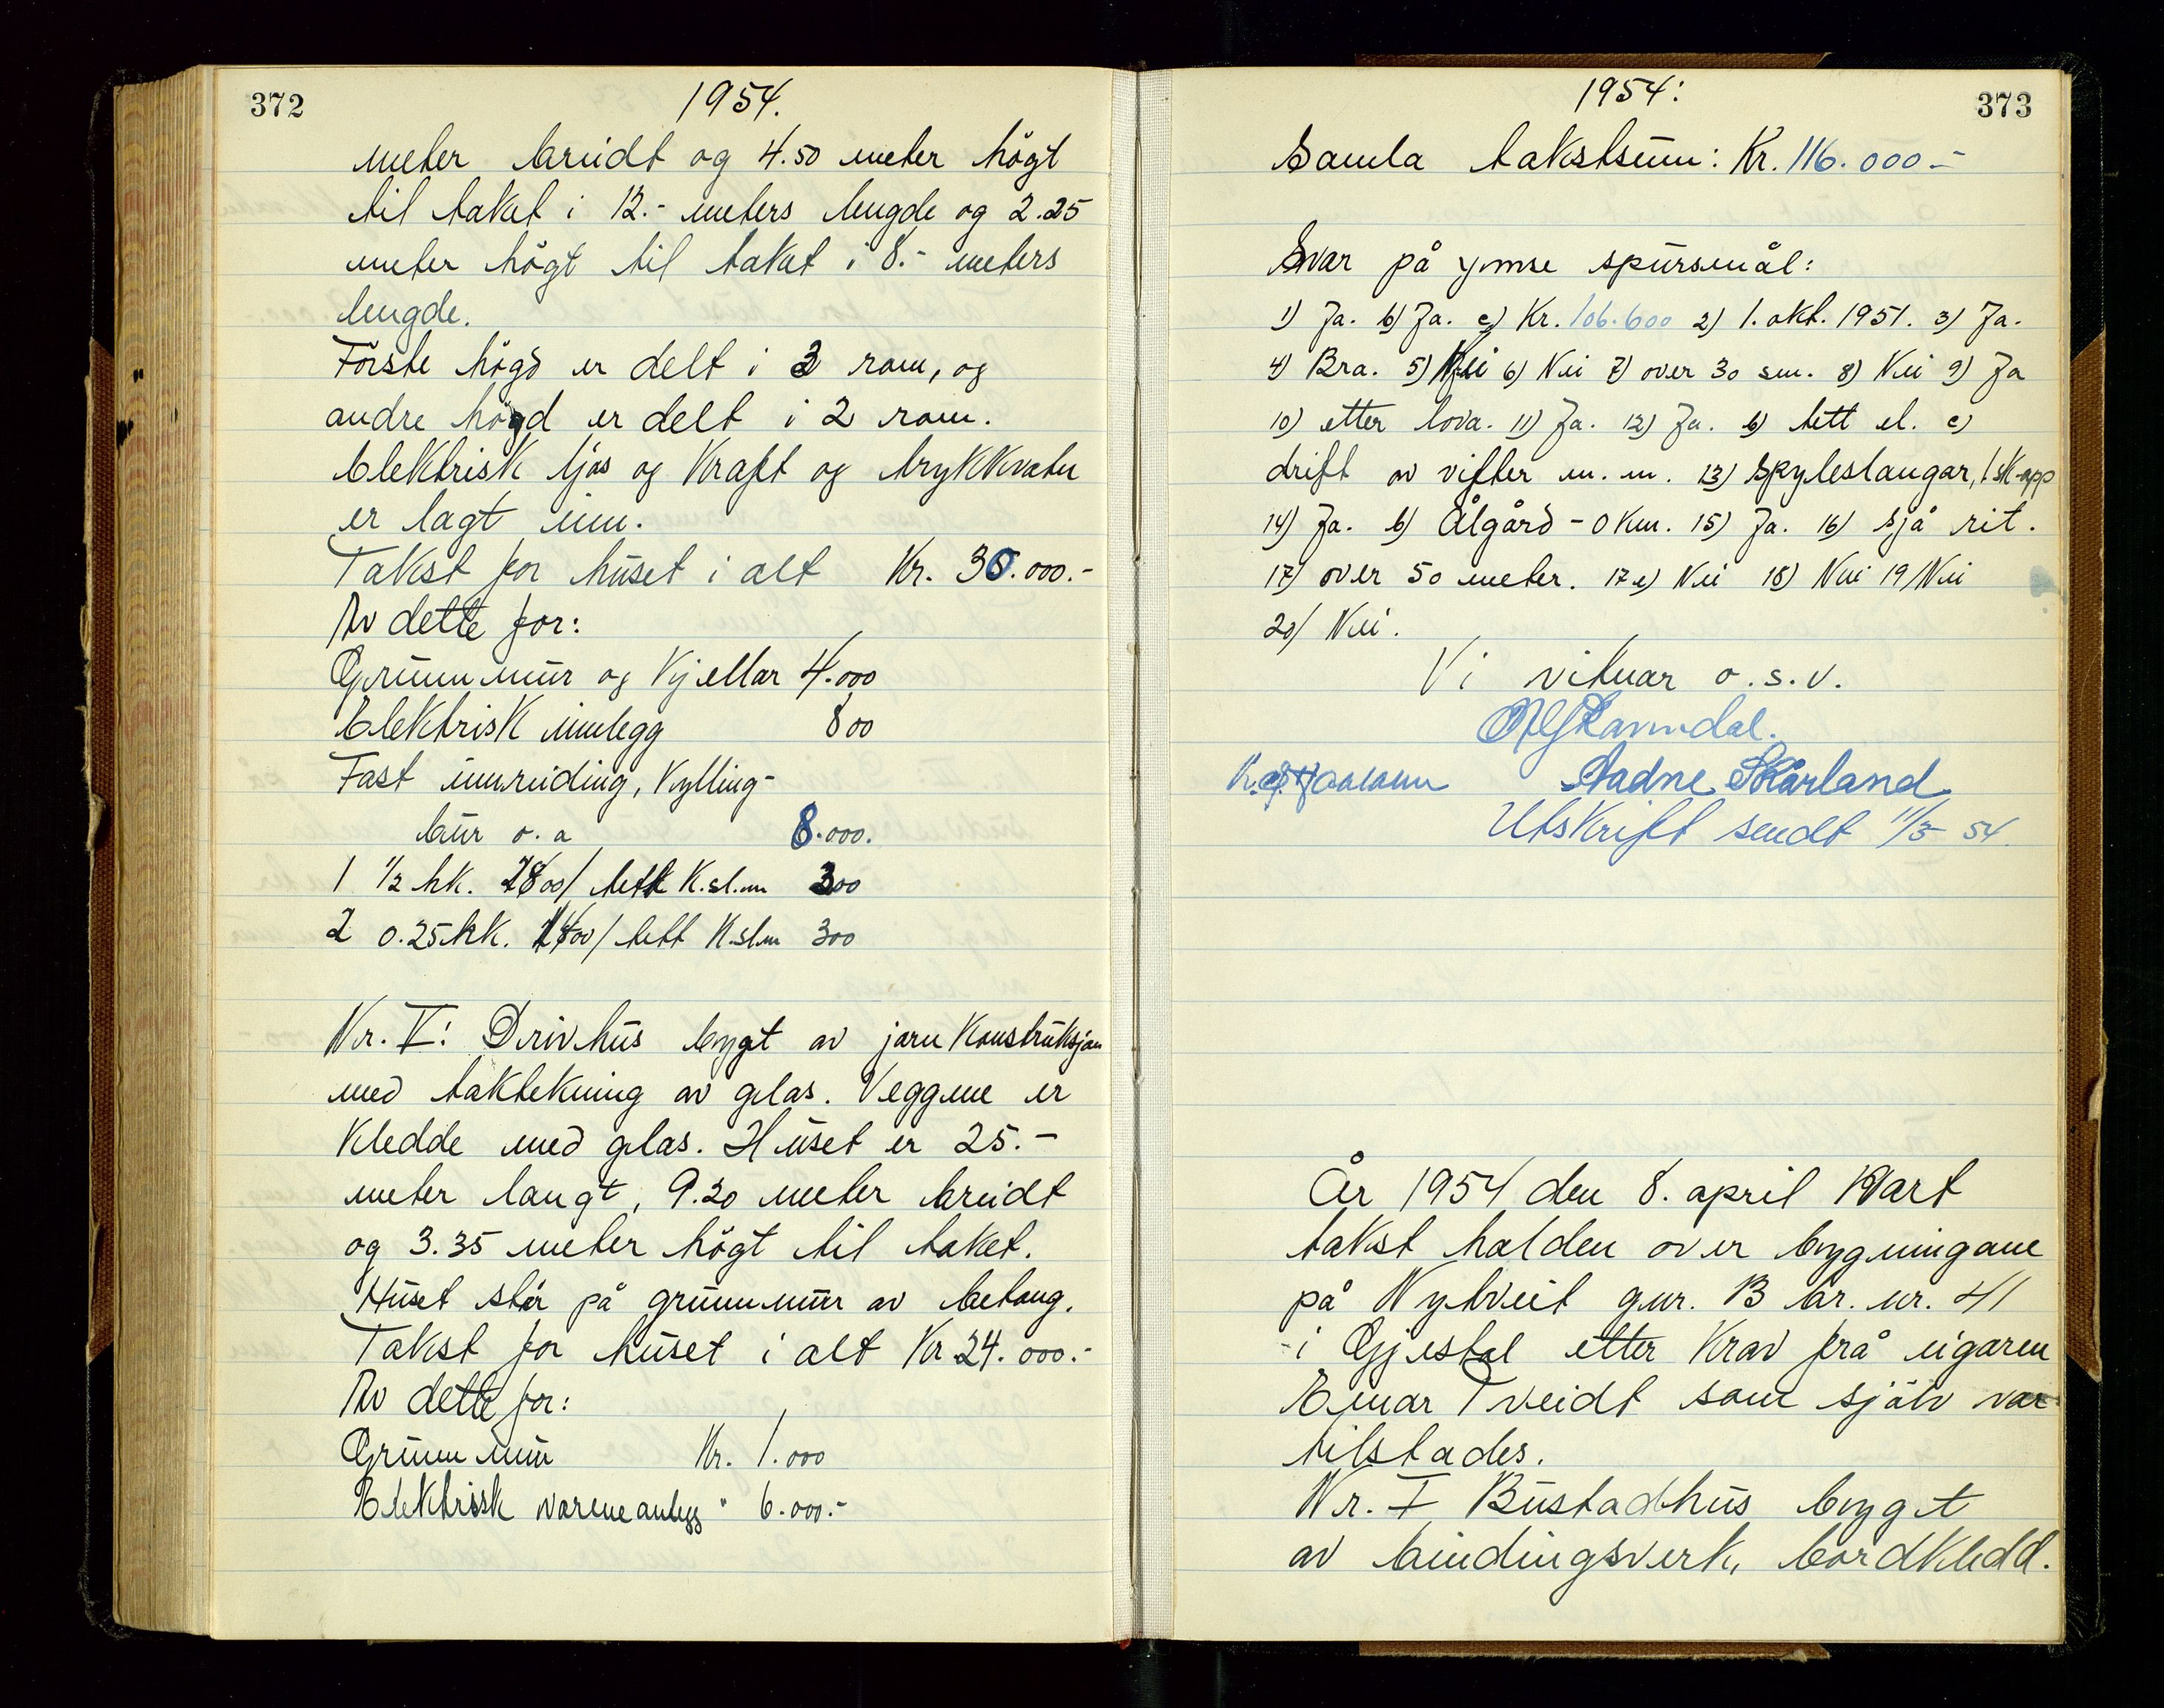 372
1954.
meter breidt og 4.50 meter högt
til taket i 12.- meters lengde og 2.25
meter högt til taket i 8.- meters
lengde.
Förste högd er delt i 3 rom, og
andre högd er delt i 2 rom.
Elektrisk ljos og Kraft og trykkvatn
er lagt inn.
Takst for huset i alt Kr. 36.000.-
Av dette for:
Grunnmur og Kjellar 4.000
Elektrisk innlegg 800
Fast innreiding, Kylling-
bur o. a 8.000.
1 1/2 hk. 2800/ tett K.sl.m 300
2 0.25 hk. 1400/ tett K.sl.m 300
Nr. V: Drivhus bygt av jarn Konstruksjon
med taktekning av glas. Veggene er
Kledde med glas. Huset er 25.-
meter langt, 9.20 meter breidt
og 3.35 meter högt til taket.
Huset står på grunnmur av betong.
Takst for huset i alt Kr 24.000.-
Av dette for:
Grunnmur Kr. 1.000
Elektrisk varmeanlegg " 6.000.-
1954:
373
Samla takstsum: Kr. 116.000.-
Svar på ymse spursmål:
1) Ja. b) Ja. c) Kr. 106.600 2) 1. okt. 1951. 3) Ja.
4) Bra. 5) Nei 6) Nei 7) over 30 sm. 8) Nei 9) Ja
10) etter lova. 11) Ja. 12) Ja. b) tett el. c)
drift av vifter m. m. 13) Spyleslangar, 1 sk-app
14) Ja. b) Ålgård - 0 Km. 15) Ja. 16) Sjå rit.
17) over 50 meter. 17e) Nei 18) Nei 19/ Nei
20/ Nei.
Vi vitnar o. s. v.
Ravndal.
Aadne Skårland
Utskrift sendt 11/5 54.
År 1954 den 8. april Vart
takst halden over bygningane
på Nytveit gnr. 13 br. nr. 41
i Gjestal etter Krav frå eigaren
Einar Tveidt som sjölv var
tilstades.
Nr. I Bustadhus bygt
av bindingsverk, bordkledd.